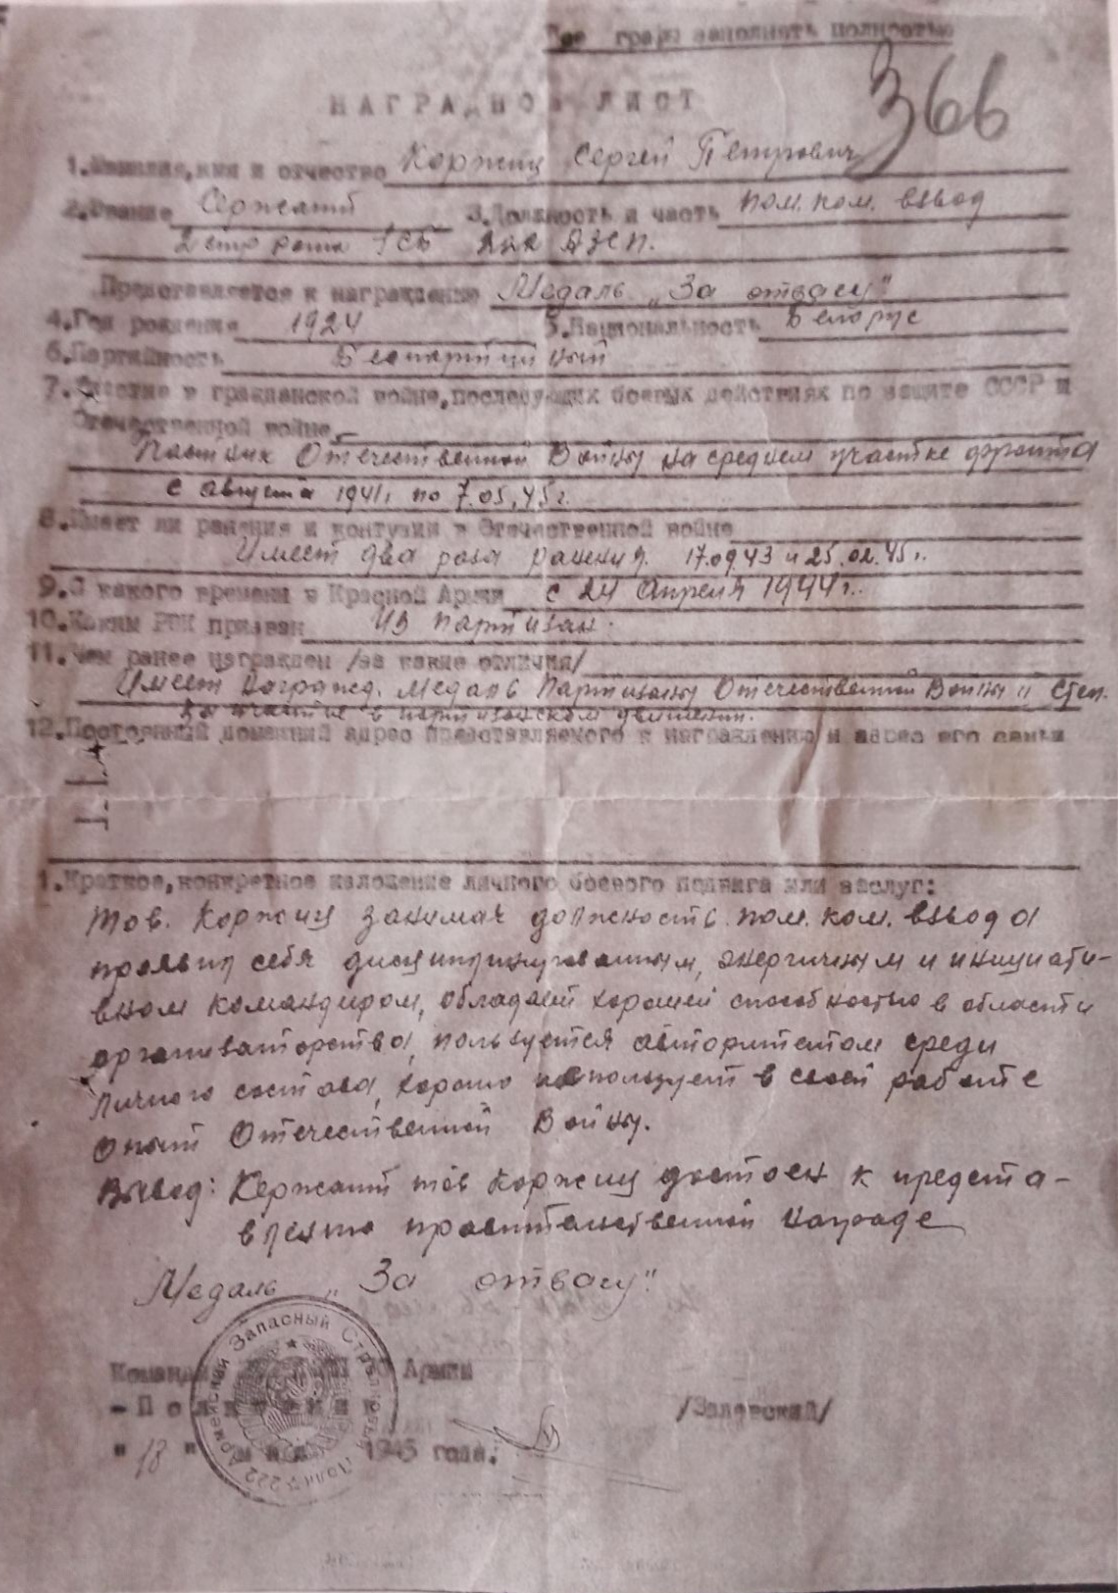 Все графы заполнять полностью
366
НАГРАДНОЙ ЛИСТ
1.Фамилия,имя и отчество Коржиц Сергей Петрович
2.Звание Сержант 3.Должность и часть пом. ком. взвод
2 стр рота 1СБ 222 АЗСП.
Представляется к награждению Медаль "За отвагу"
4.Год рождения 1924 5.Национальность Белорус
6.Партийность Беспартийный
7.Участие в гражданской войне,последующих боевых действиях по защите СССР и
Отечественной войне
Отечественной Войны на среднем участке фронта
с августа 1941г по 7.05.45г.
8.Имеет ли ранения и контузии в Отечественной войне
Имеет два раза ранения. 17.09.43 и 25.02.45г.
9.С какого времени в Красной Армии с 24 Апреля 1944г.
10.Каким РВК призван Из партизан.
11.Чем ранее награжден /за какие отличия/
Имеет награжд. Медаль Партизаны Отечественной Войны II Степ.
за участие в партизанском движении.
12.Постоянный домашний адрес представляемого к награждению и адрес его семьи
1.Краткое,конкретное изложение личного боевого подвига или заслуг:
Тов. Коржиц занимая должность пом. ком. взвода
проявил себя дисциплинированным, энергичным и инициати-
вном командиром, обладает хорошей способностью в области
организаторства, пользуется авторитетом среди
личного состава, хорошо использует в своей работе
опыт Отечественной Войны.
Вывод: Сержант тов Коржиц достоен к предста-
влению правительственной награде
Медаль "За отвагу"
222 Армейский Запасный Стрелковый Полк
Командир Армии
-Полковник /Залевский/
"18" мая 1945 года.